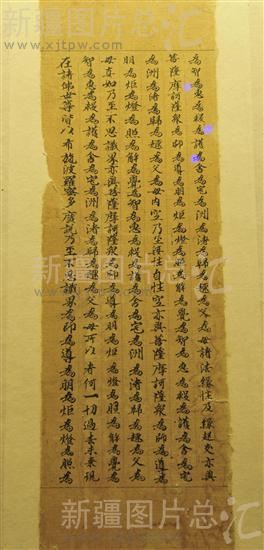 新疆图片总汇
www.xjtpw.com
為智為惠為救為護為舍為宅為洲為渚為歸為趣為父為母諸法緣性及緣起支亦與
菩薩摩訶薩眾為師為導為明為炬為燈為照為解為覺為智為惠為救為護為舍為宅
為洲為渚為歸為趣為父為母內空乃至無性自性空亦與菩薩摩訶薩眾為師為導為
明為炬為燈為照為解為覺為智為惠為救為護為舍為宅為洲為渚為歸為趣為父為
母真如乃至不思議界亦與菩薩摩訶薩眾為師為導為明為炬為燈為照為解為覺為
智為惠為救為護為舍為宅為洲為渚為歸為趣為父為母所以者何一切過去未來現
在諸佛世尊皆以布施波羅蜜多廣說乃至不思議界為師為導為明為炬為燈為照為
新疆图片总汇
新疆图片总汇